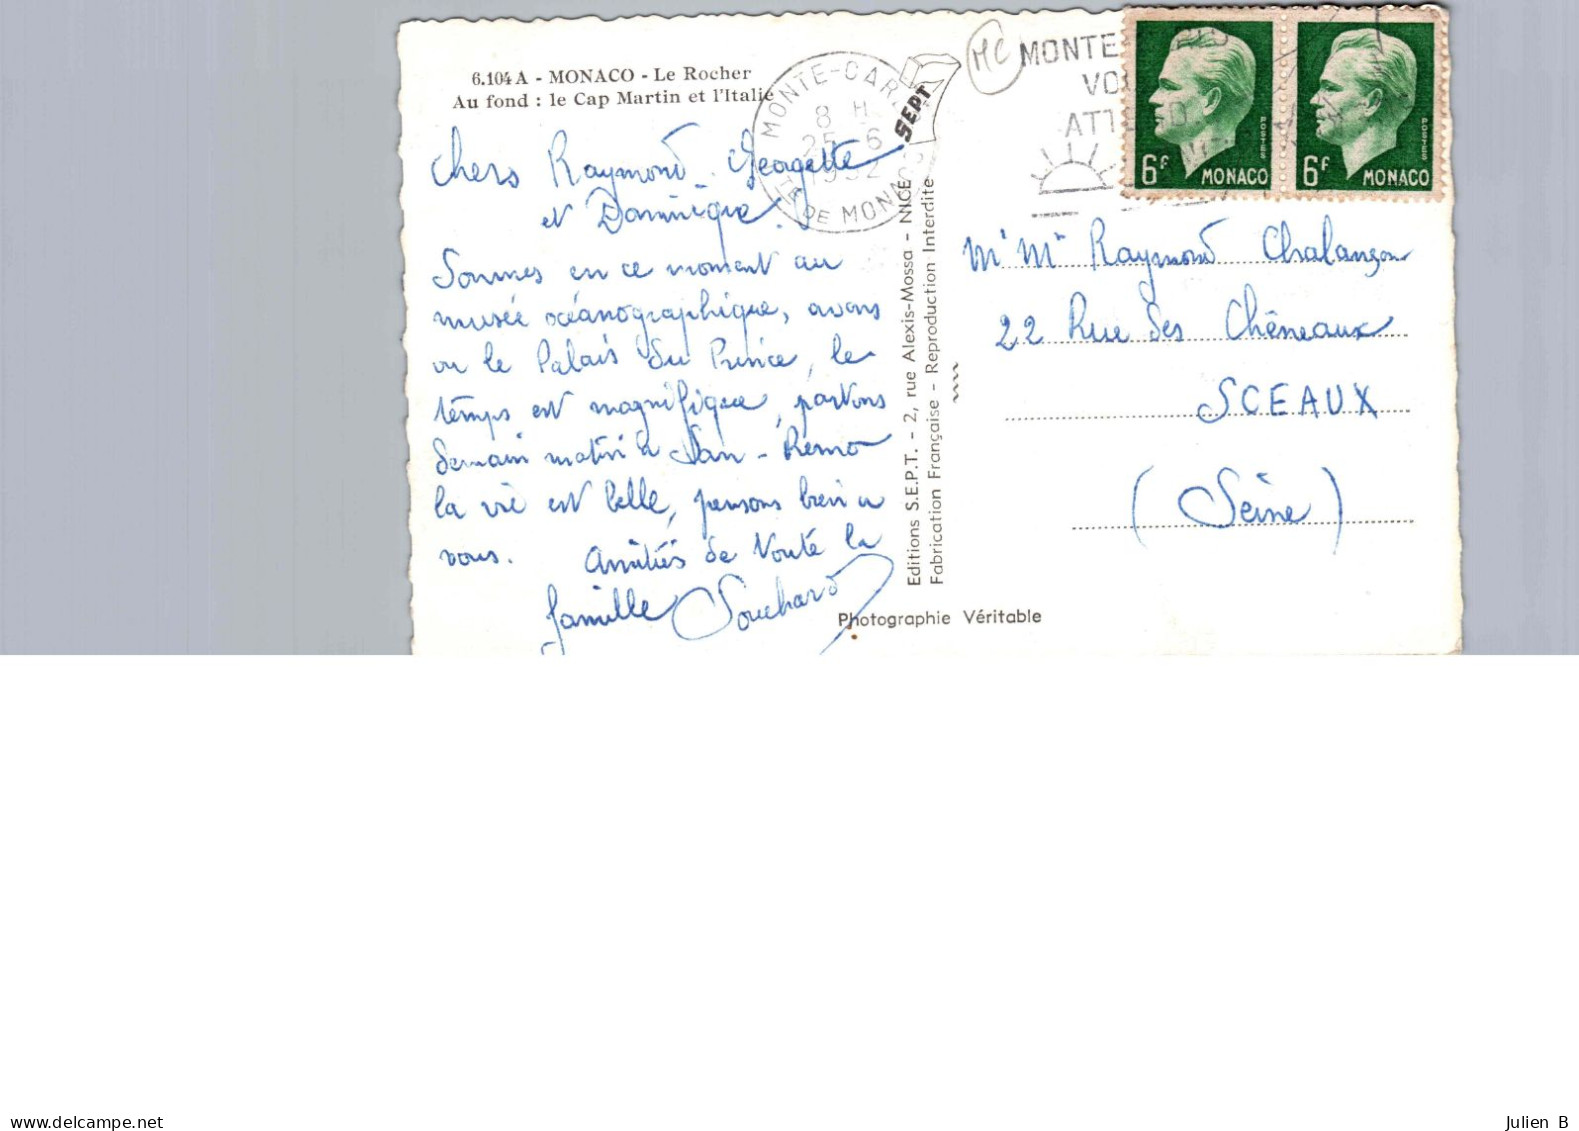 6.104 A - MONACO - Le Rocher
Au fond : le Cap Martin et l'Italie
Chers Raymond, Georgette
et Dominique.
Sommes en ce moment au
musée océanographique, avons
vu le Palais du Prince, le
temps est magnifique, partons
demain matin à San-Remo
la vie est belle, pensons bien à
vous. Amitiés de toute la
famille Souchard
MONTE-CARLO
8 H
25 - 6
1952
PTÉ DE MONACO
SEPT
Editions S.E.P.T. - 2, rue Alexis-Mossa - NICE
Fabrication Française - Reproduction Interdite
Photographie Véritable
MC
MONTE
VOU
ATTEND
6F POSTES MONACO
6F POSTES MONACO
Mr Mme Raymond Chalançon
22 Rue des Chêneaux
SCEAUX
(Seine)
delcampe.net
Julien B